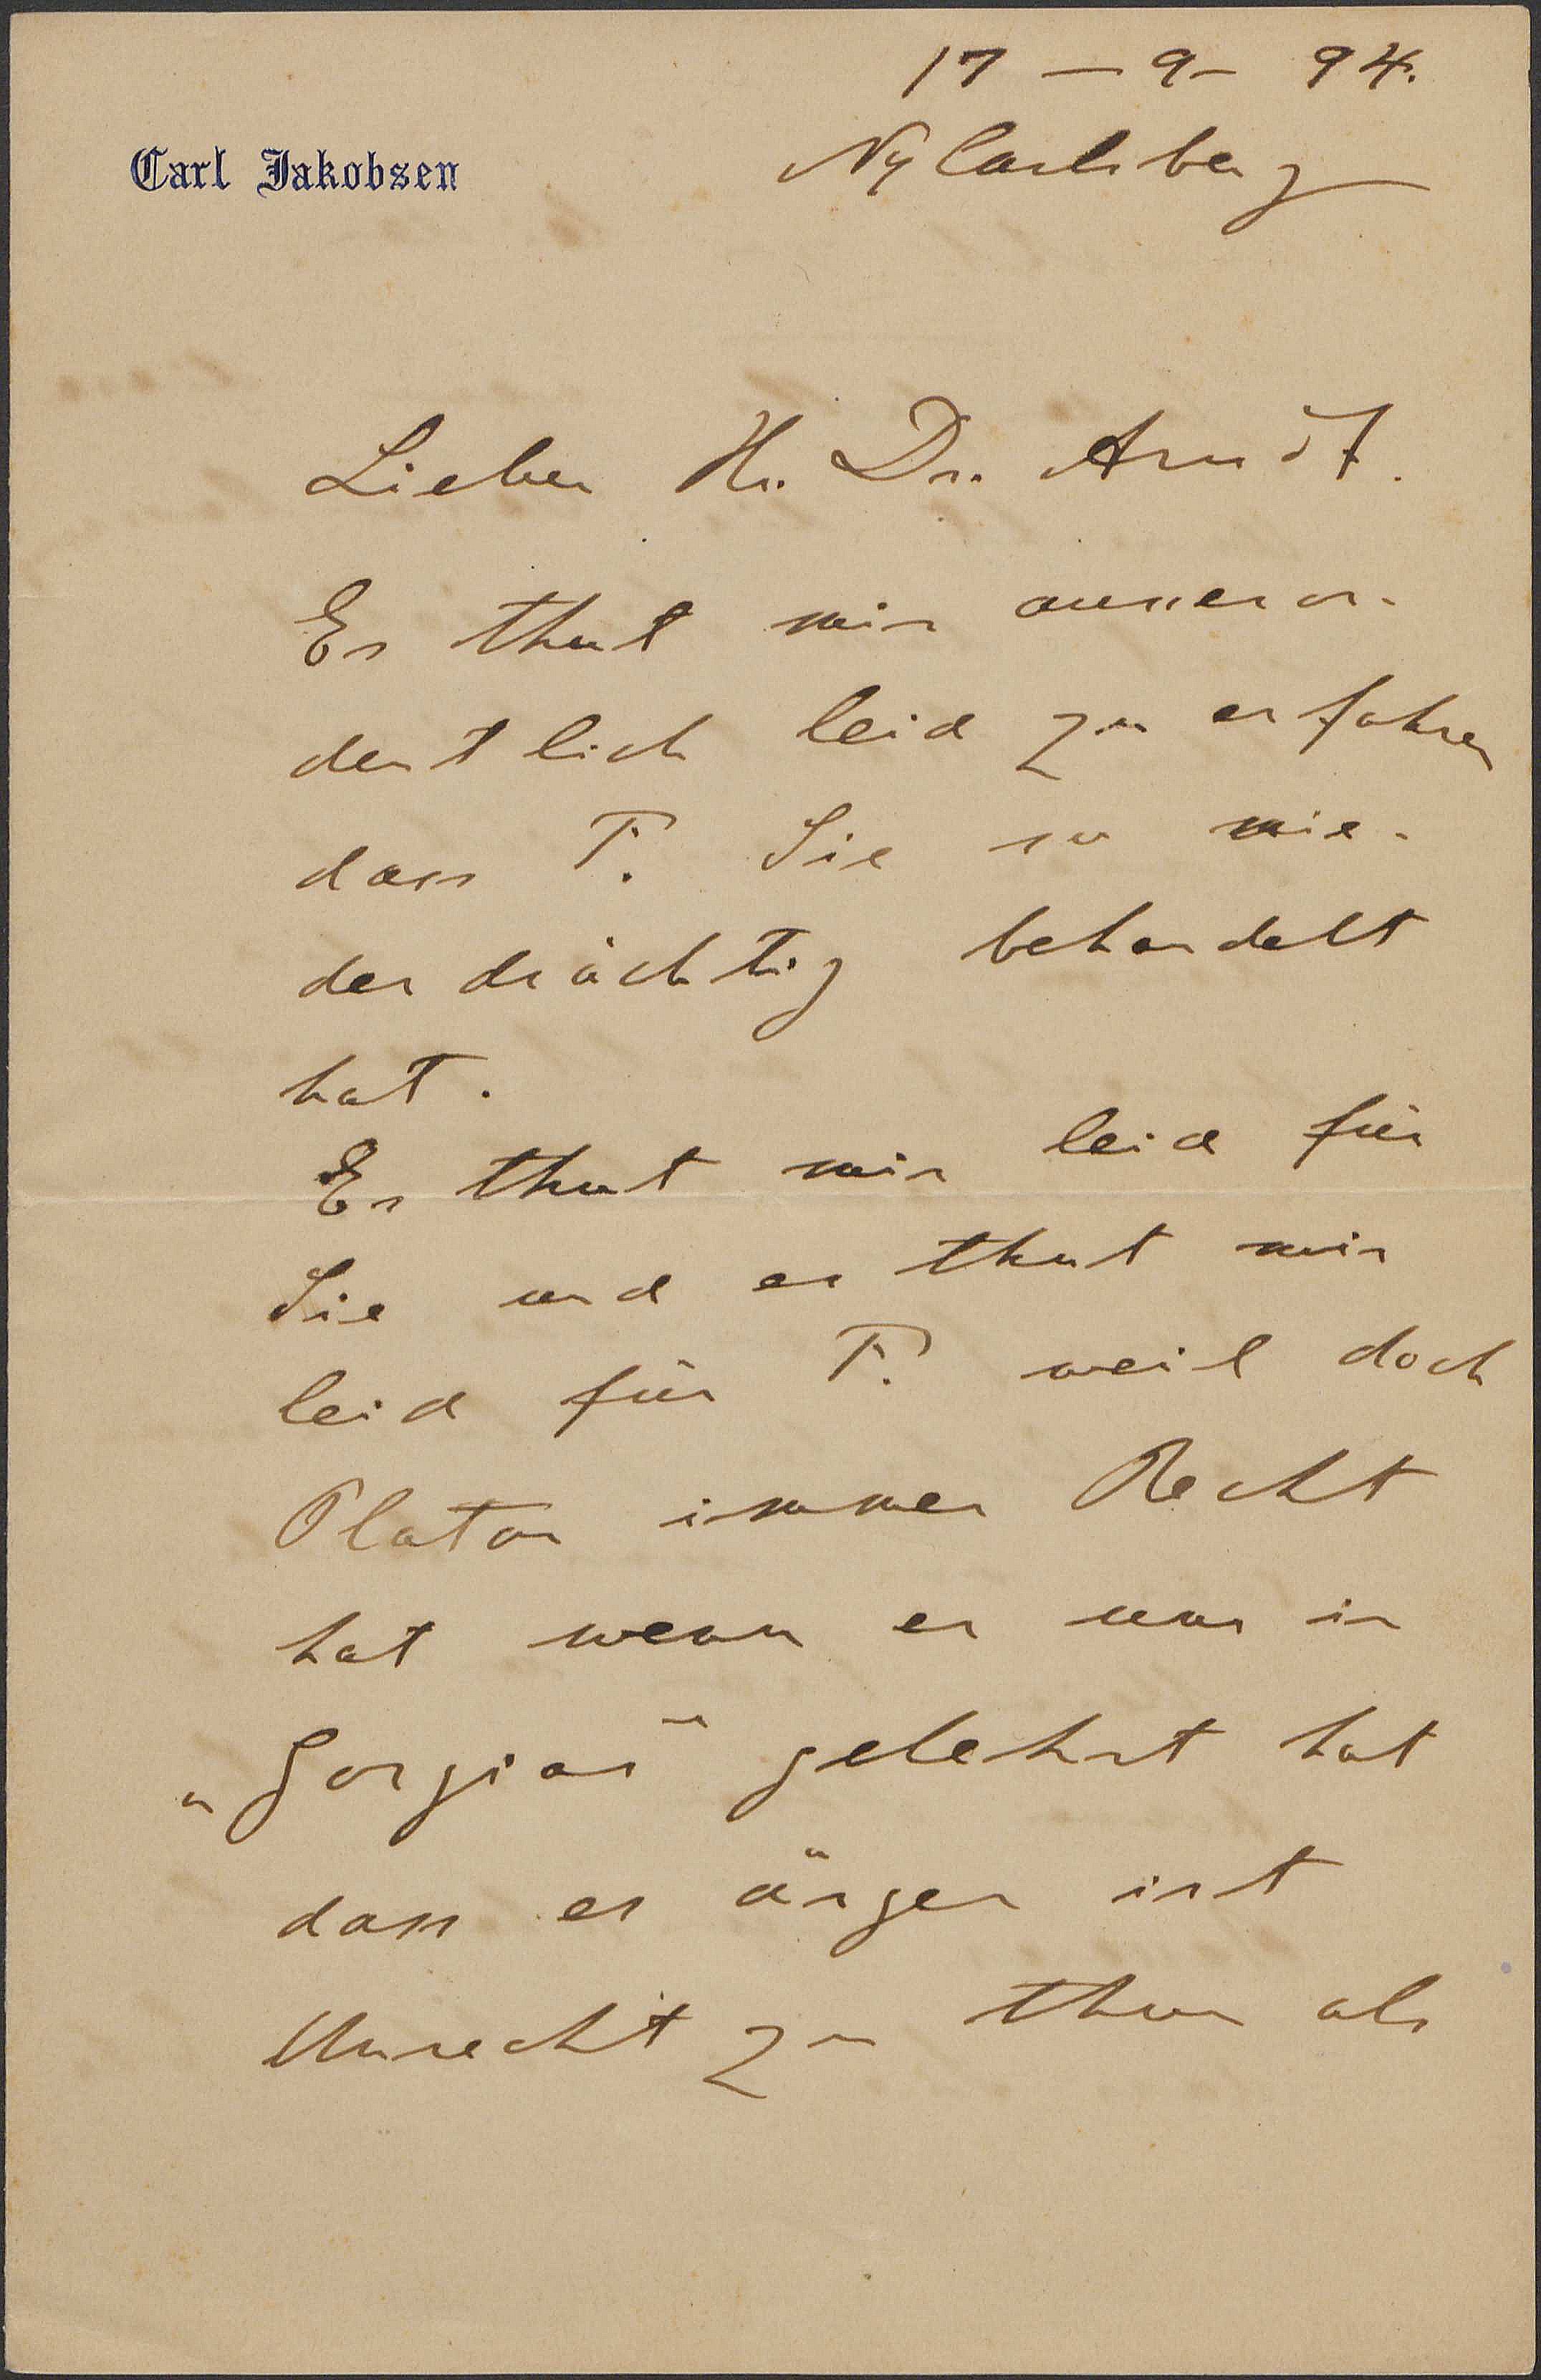 17 – 9 – 94.
Carl Jakobsen
Ny Carlsberg
Lieber Hr. Dr. Arndt.
Es thut mir ausseror-
dentlich leid zu erfahren
dass T. Sie so nie-
derdrächtig behandelt
hat.
Es thut mir leid für
Sie und es thut mir
leid für T. weil doch
Platon immer Recht
hat wenn er uns in
„Gorgias“ gelehrt hat
dass es ärger ist
Unrecht zu thun als